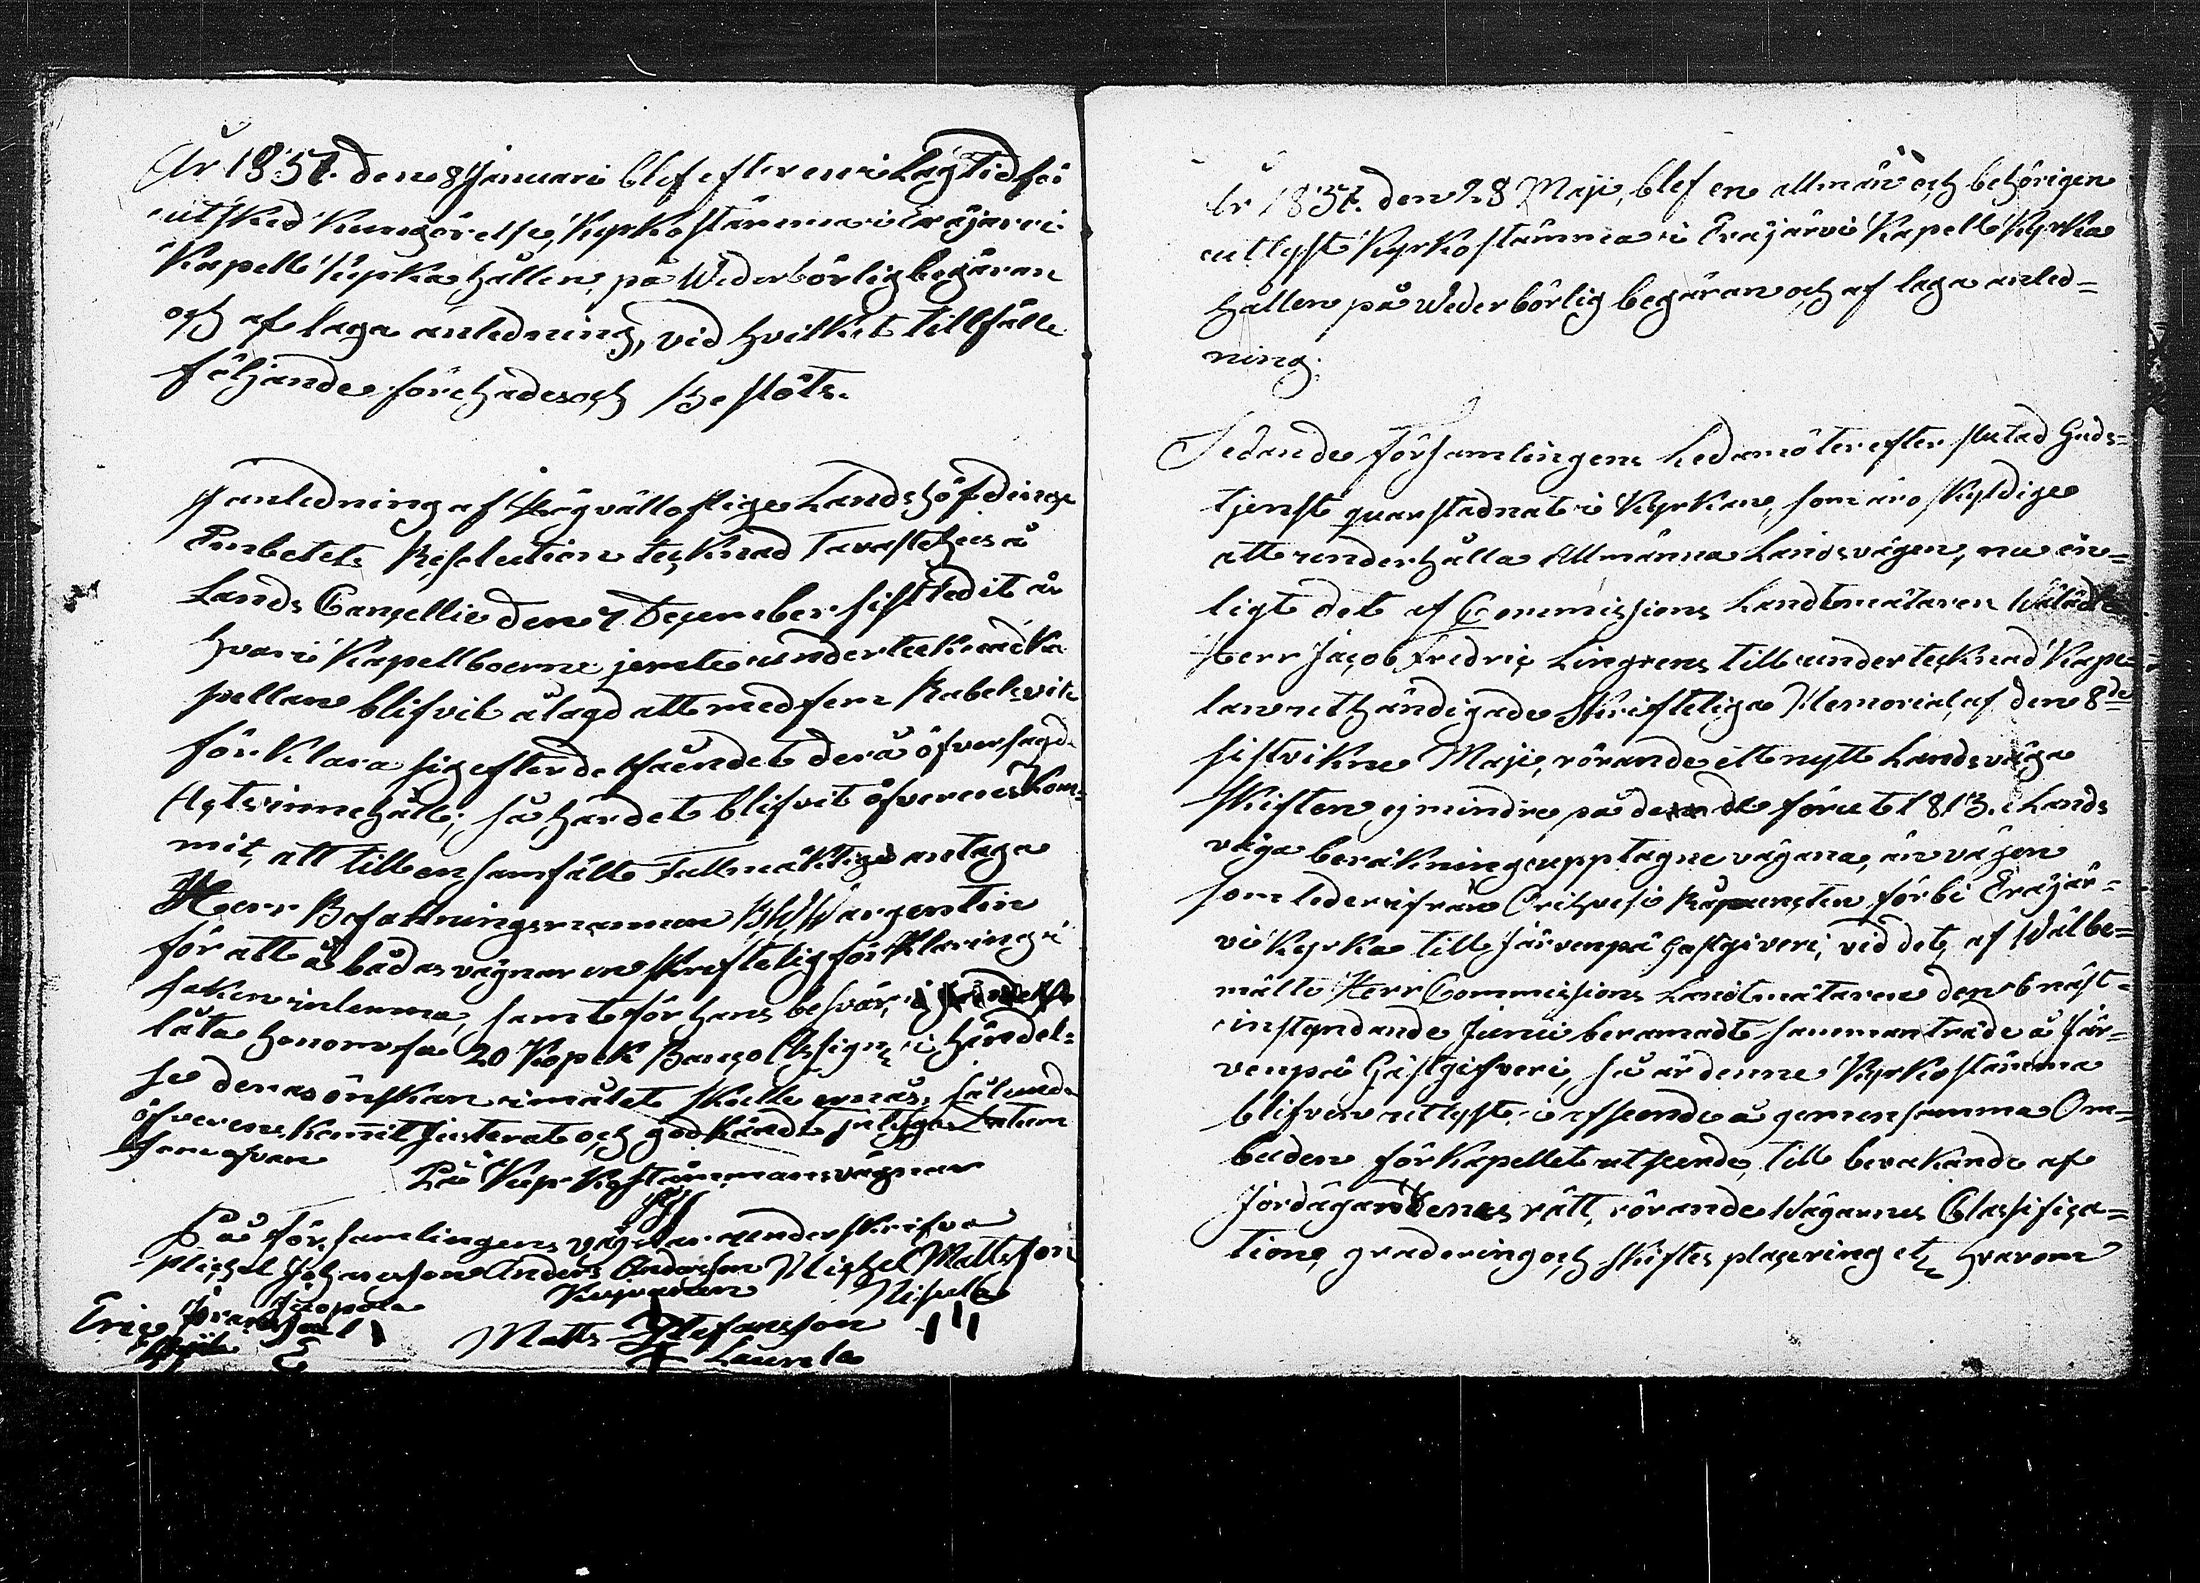 År 1837. den 8 Januari blef efter en i Lag tid för
utsked Kungörelse, Kyrkostämma i Eräjärvi
Kapell Kyrka hållen, på Wederbörlig begäran
och af laga anledning, vid hvilket tillfälle
följande förehades och Beslöts.
I anledning af Högvälloflige Landshöfdinge
Embetets Resolution tecknad Tavastehus å
Lands Cancellie den 7 December sistledit år
hvari Kapellboerne jemte undertecknad Ka
pellan blifvit ålagd att med fem Rubels vite
förklara sig efter derå öfversagde
Acts innehåll; så har det blifvit öfverenskom=
mit, att till en samfält Fullmäktige antaga
Herr Befattningsmannen Wargentin
för att å bådas vägnar en skriftelig förklaring i
saken inlemna, samt för hans besvär,
låta honom få 20 Kopek Banco Assign: i händel=
se deras önskan i målet skulle ernås, sålunda
öfverenskommit justerat och godkändt datum
som ofvan
På Kyrkostämmans vägnar
På församlingens vägnar underskrifva
Michel Johansson Anders Andersson Michel Mattsson
Juopola
Eric
Matts Stefansson
Laurila
År 1837. den 28 Maji, blef en allmän och behörigen
utlyst Kyrkostämma i Eräjärvi Kapell Kyrka
hållen på Wederbörlig begäran och af laga anled=
ning.
Sedan de församlingens Ledamöter efter slutad Guds=
tjenst quarstadnat i Kyrkan, som äro skyldige
att underhålla Allmänna Landsvägen, nu en=
ligt det af Commissions Landtmätaren Wäläd
Herr Jacob Fredric Lingren till undertecknad Kape=
lan uthändigade skrifteliga Memorial af den 8de
sistvikne Maji, rörande ett nytt Landsväga
skiften ej mindre på de förut 1813. i Lands
väga beräkning upptagne vägarna, än vägen
som leder ifrån Orihvesi förbi Eräjär=
vi Kyrka till Järvenpä Gästgiveri, vid det, af Wälbe=
mälte Herr Commissions Landtmätaren den 6 näst=
instundande Junii beramadt sammanträde å Jär=
venpä Gästgifveri, så är denne Kyrkostämma
blifven utlyst, i afseende å gemensamma Om=
buden för Kapellet utseende, till bevakande af
Jordägarnes rätt, rörande Wägarnes Classifica=
tion, gradering och skiftes placering etc hvarom